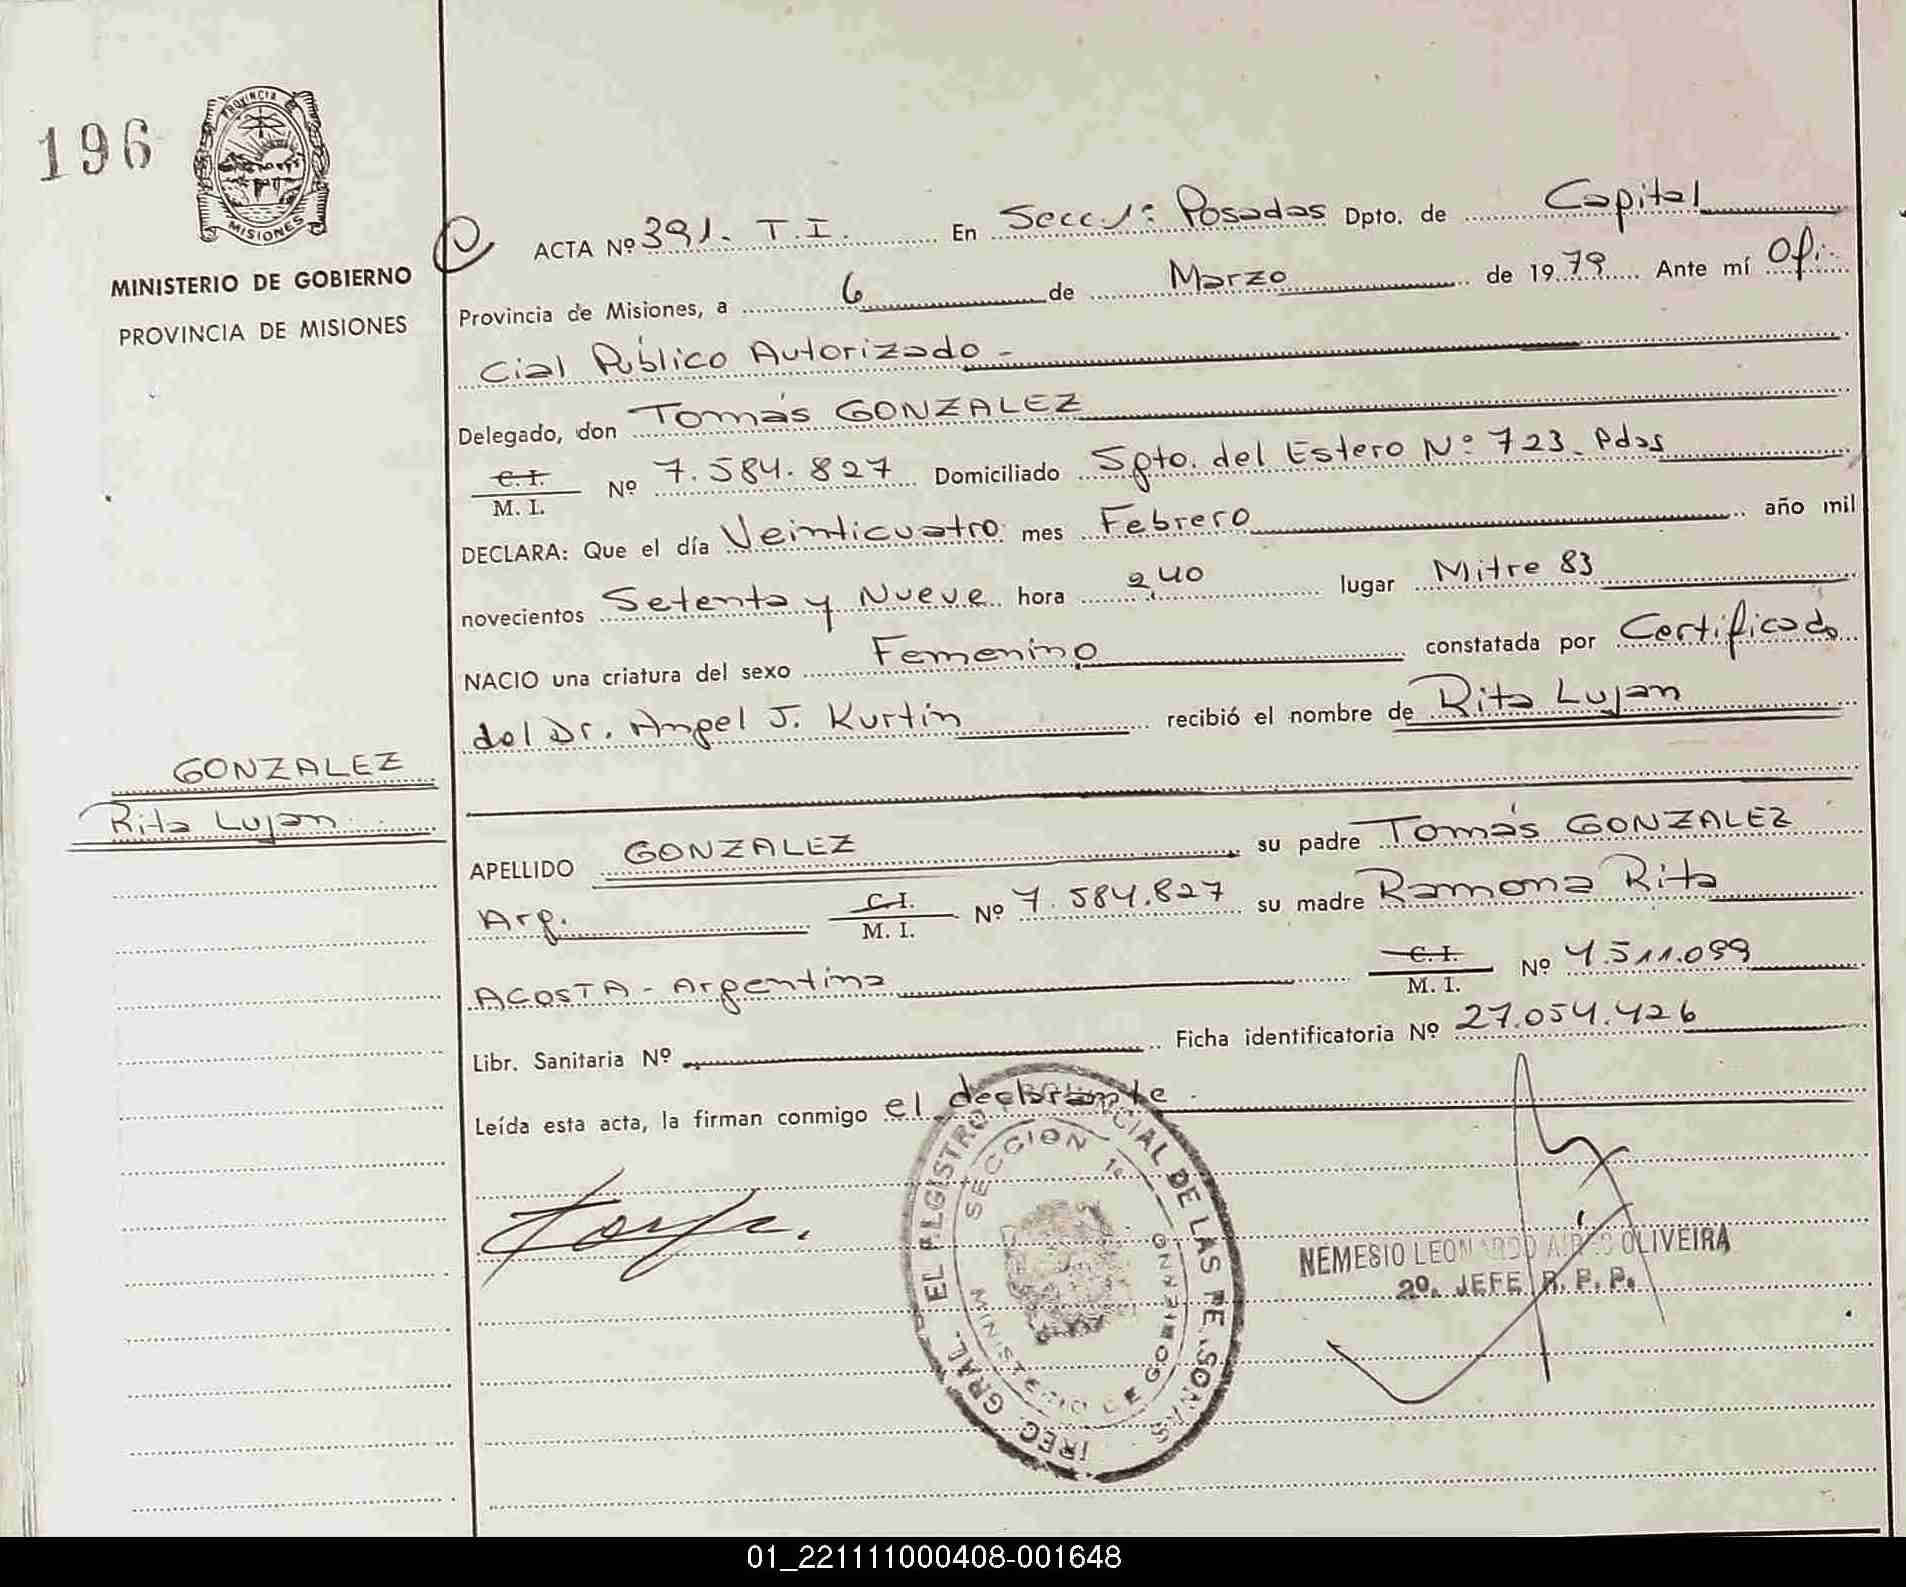 196
PROVINCIA DE
MISIONES
MINISTERIO DE GOBIERNO
PROVINCIA DE MISIONES
ACTA Nº 391. T.I. En Secc. 1ª Posadas Dpto. de Capital
Provincia de Misiones, a 6 de Marzo de 1979 Ante mí Ofi-
cial Público Autorizado -
Delegado, don Tomás GONZALEZ
C. I.
M. I.
Nº 7.584.827 Domiciliado Sgto. del Estero Nº 723. Pdas
DECLARA: Que el día Veinticuatro mes Febrero año mil
novecientos Setenta y Nueve hora 2,40 lugar Mitre 83
NACIO una criatura del sexo Femenino constatada por Certificado
del Dr. Angel J. Kurtin recibió el nombre de Rita Lujan
GONZALEZ
Rita Lujan
APELLIDO GONZALEZ su padre Tomás GONZALEZ
Arg. C. I. M. I. Nº 7.584.827 su madre Ramona Rita
ACOSTA - Argentina C. I. M. I. Nº 4.511.099
Libr. Sanitaria Nº Ficha identificatoria Nº 27.054.426
Leída esta acta, la firman conmigo el declarante.
SECCION 1ª
MINISTERIO DE GOBIERNO
NEMESIO LEONARDO OLIVEIRA
2º. JEFE R. P. P.
01_221111000408-001648